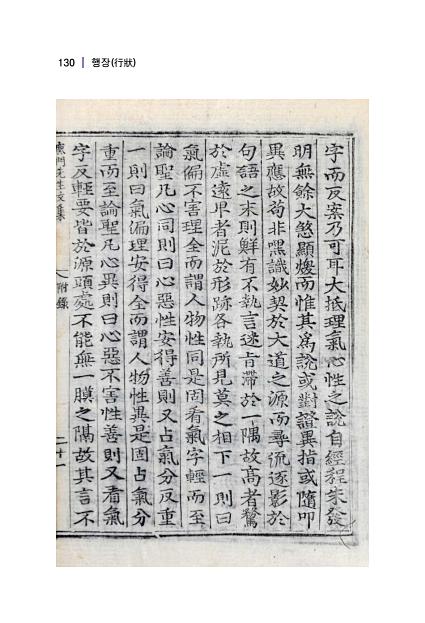 130 | 행장(行狀)
字而反案乃可耳大抵理氣心性之說自經程朱發
明無餘大煞顯煖而惟其爲說或對證異指或隨叩
異應故苟非嘿識妙契於大道之源而尋流逐影於
句語之末則鮮有不執言迷肯滯於一隅故高者騖
於虛遠卑者泥於形跡各執所見莫之相下一則曰
氣偏不害理全而謂人物性同是固看氣字輕而至
論聖凡心同則曰心惡性安得善則又占氣分反重
一則曰氣偏理安得全而謂人物性異是固占氣分
重而至論聖凡心異則曰心惡不害性善則又看氣
字反輕要皆於源頭處不能無一膜之隔故其言不
附錄
二十一